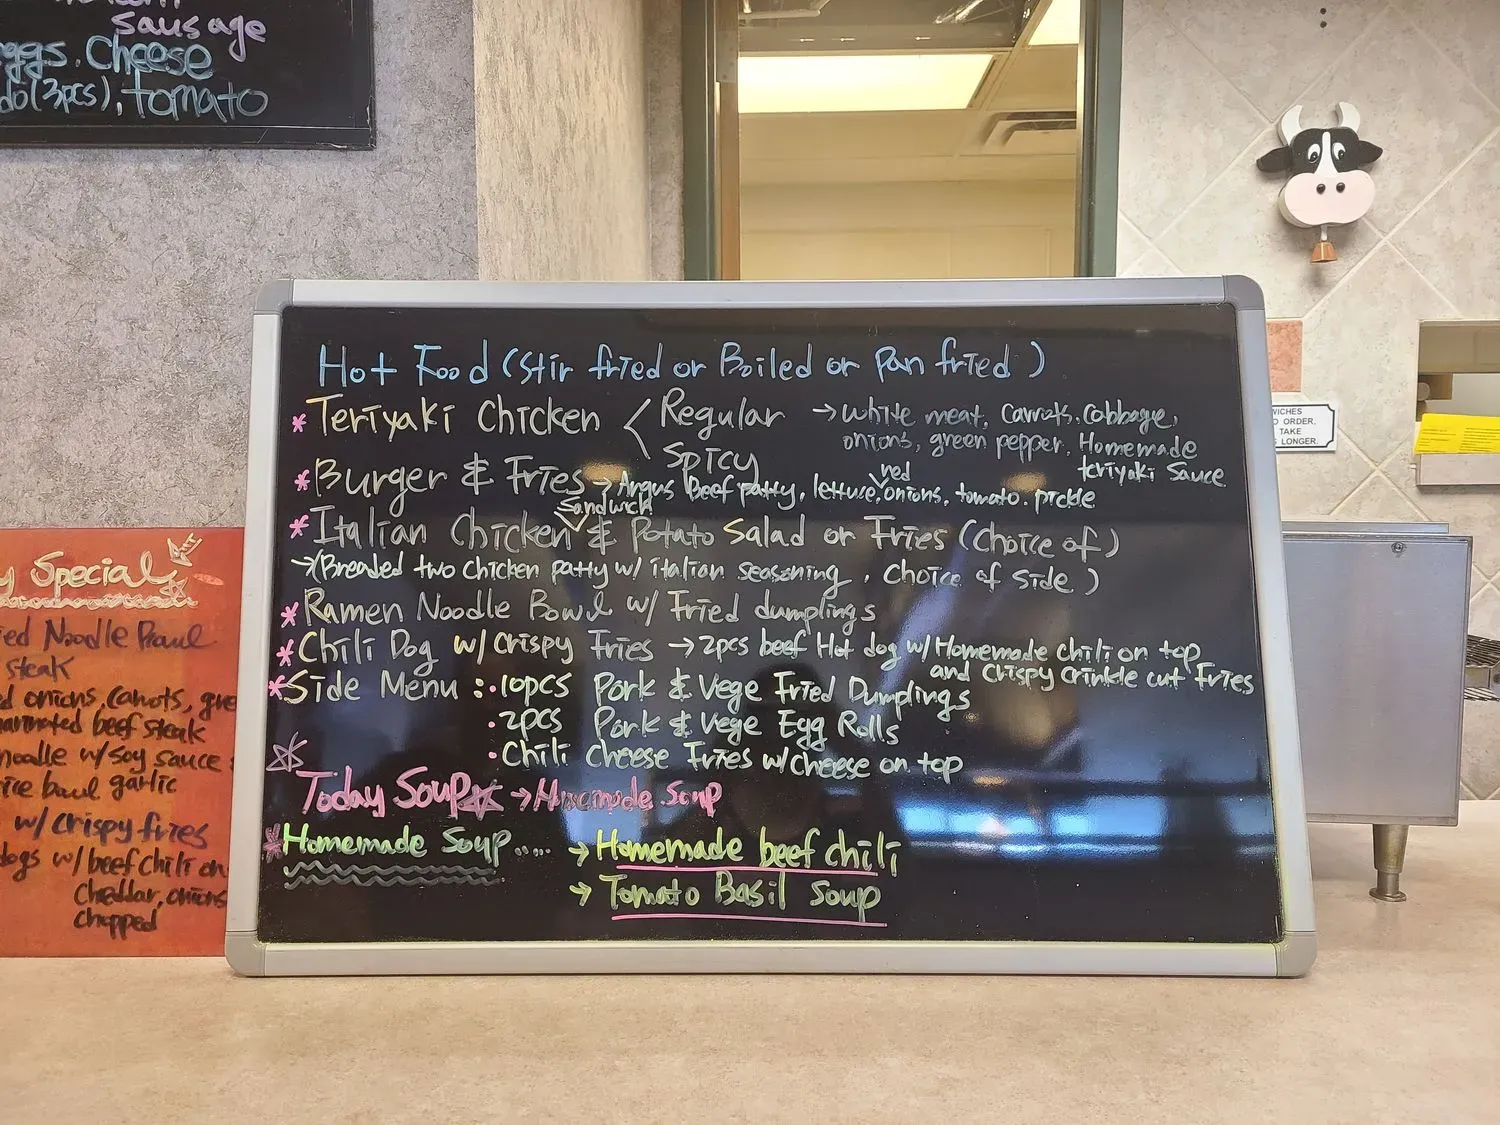 sausage
eggs. Cheese
do (3pcs), tomato
Hot Food (Stir fried or Boiled or Pan fried)
* Teriyaki Chicken < Regular → white meat, Carrots, Cabbage,
onions, green pepper, Homemade
Spicy
teriyaki Sauce
* Burger & Fries → Angus Beef patty, lettuce, red onions, tomato. pickle
* Italian Chicken Sandwich & Potato Salad or Fries (Choice of)
→ (Breaded two chicken patty w/ italian seasoning, choice of side)
* Ramen Noodle Bowl w/ Fried dumplings
* Chili Dog w/ Crispy Fries → 2pcs beef Hot dog w/ Homemade chili on top
and Crispy crinkle cut Fries
* Side Menu : · 10pcs Pork & Vege Fried Dumplings
· 2pcs Pork & Vege Egg Rolls
· Chili Cheese Fries w/ cheese on top
Today Soup → Homemade Soup
* Homemade Soup ..... → Homemade beef chili
→ Tomato Basil Soup
Special
Noodle
steak
onions, Carrots,
beef steak
noodle w/ soy sauce
garlic
w/ crispy fries
dogs w/ beef chili on
Cheddar, onions
chopped
WICHES
O ORDER,
TAKE
LONGER.